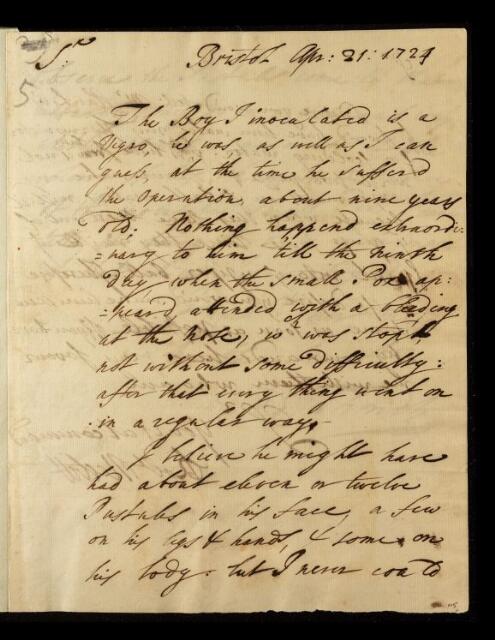 Sr
Bristol Apr: 21: 1724
5
The Boy I inoculated is a
Negro, he was as well as I can
guess, at the time he sufferd
the Operation, about nine years
old: Nothing happend extraordi:
=nary to him 'till the ninth
Day when the small Pox ap:
=peard, attended with a bleeding
at the Nose, wch was stopt
not without some difficulty:
after that every thing went on
in a regular way.
I believe he might have
had about eleven or twelve
Pustules in his face, a few
on his legs & hands, & some on
his body: but I never could